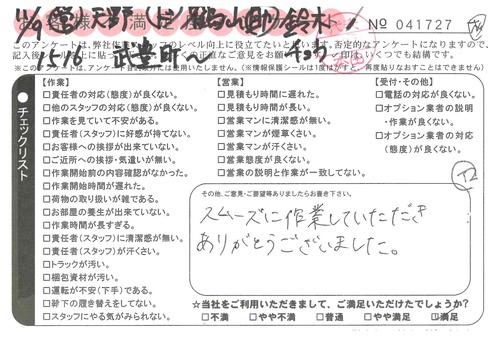 11/9(営)天野(作)
鈴木
No 041727
このアンケートは、弊社
否定的なアンケートになりますので、
記入後
いくつでも結構です。
※このアンケートは、アンケート目的以外には使用いたしません。(※情報保護シールは1度はがすと、再度貼りなおすことはできません)
チェックリスト
【作業】
□責任者の対応(態度)が良くない。
□他のスタッフの対応(態度)が良くない。
□作業を見ていて不安がある。
□責任者(スタッフ)に好感が持てない。
□お客様への挨拶が出来ていない。
□ご近所への挨拶・気遣いが無い。
□作業開始前の内容確認がなかった。
□作業開始時間が遅れた。
□荷物の取り扱いが雑である。
□お部屋の養生が出来ていない。
□作業時間が長すぎる。
□責任者(スタッフ)に清潔感が無い。
□責任者(スタッフ)が汗くさい。
□トラックが汚い。
□梱包資材が汚い。
□運転が不安(下手)である。
□靴下の履き替えをしてない。
□スタッフにやる気がみられない。
【営業】
□見積もり時間に遅れた。
□見積もり時間が長い。
□営業マンに清潔感が無い。
□営業マンが煙草くさい。
□営業マンが汗くさい。
□営業態度が良くない。
□営業の説明と作業が一致してない。
【受付・その他】
□電話の対応が良くない。
□オプション業者の説明
・作業が良くない。
□オプション業者の対応
(態度)が良くない。
その他、ご意見・ご要望等ありましたらお書き下さい。
スムーズに作業していただき
ありがとうございました。
☆当社をご利用いただきまして、ご満足いただけたでしょうか?
□不満 □やや不満 □普通 □やや満足 □満足